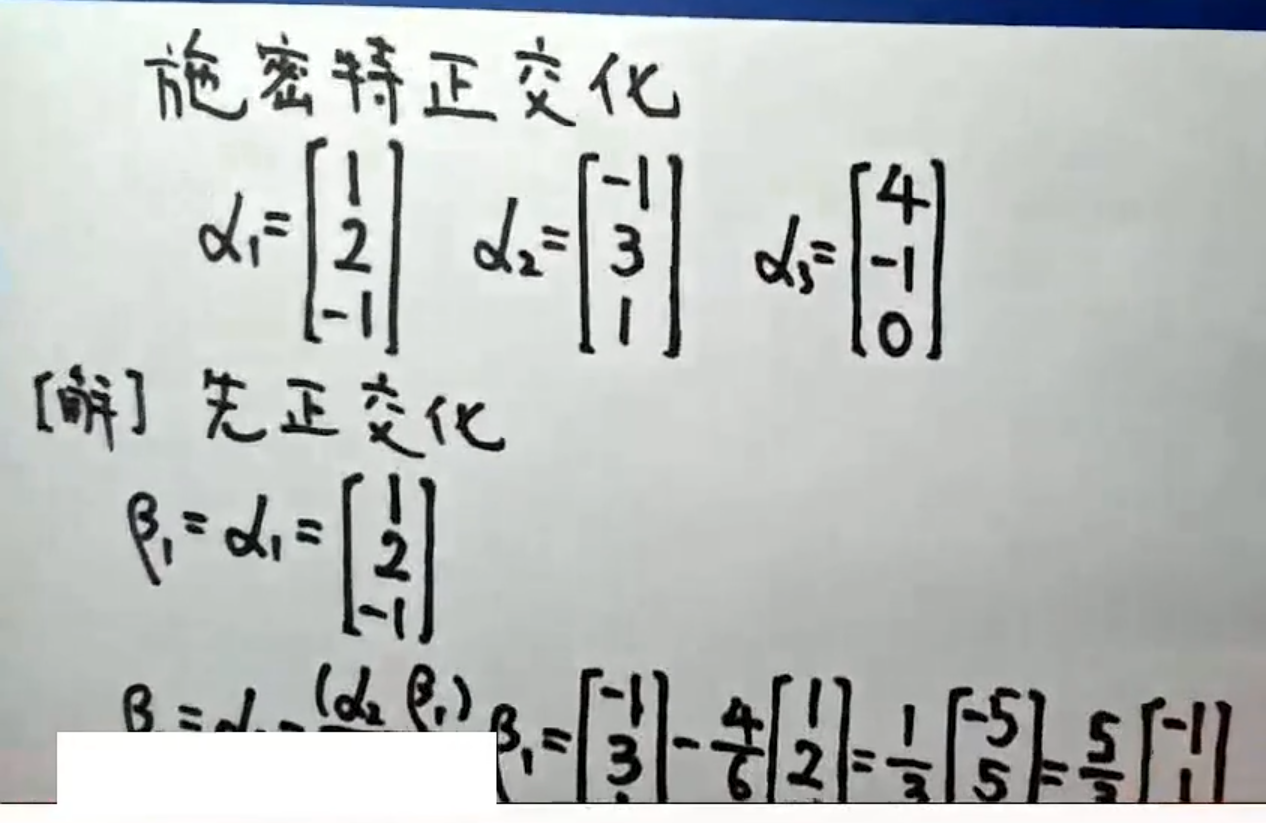 施密特正交化
α₁=[1 2 -1] α₂=[-1 3 1] α₃=[4 -1 0]
[解] 先正交化
β₁=α₁=[1 2 -1]
β = α - (α₂ β₁) β₁=[-1 3]-4/6[1 2]=1/3[-5 5]=5/3[-1 1]